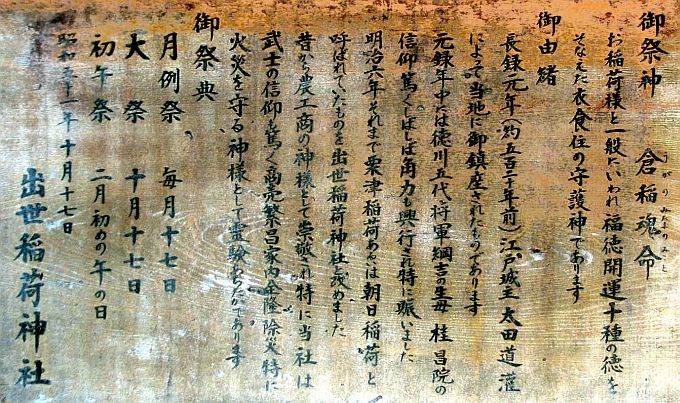 御祭神　倉稲魂命
うがのみたまのみこと
お稲荷様と一般にいわれ福徳開運十種の徳を
そなえた衣食住の守護神であります
御由緒
長録元年（約五百二十年前）江戸城主 太田道灌
によって当地に御鎮座されたものであります
元録年中には徳川五代将軍綱吉の生母 桂昌院の
信仰篤くしばしば角力も興行され特に賑いました
明治六年それまで粟津稲荷あるいは朝日稲荷と
呼ばれていたものを出世稲荷神社と改めました
昔から農工商の神様として崇敬され特に当社は
武士の信仰も篤く商売繁昌家内全隆除災特に
火災を守る神様として霊験あらたかであります
御祭典
月例祭　毎月十七日
大祭　十月十七日
初午祭　二月初めの午の日
昭和五十一年十月十七日
出世稲荷神社